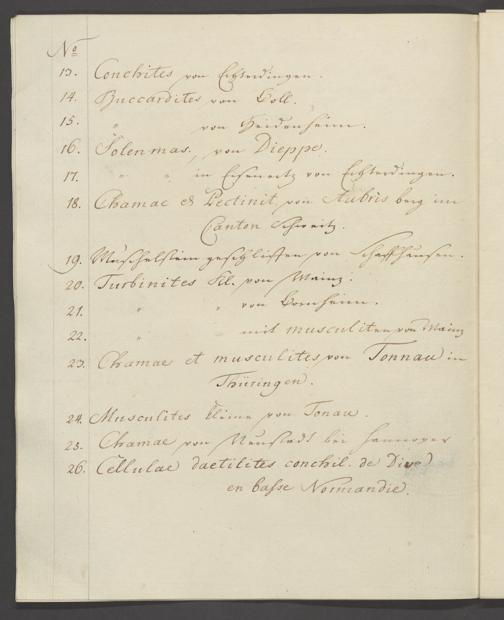 No
13. Conchites von Echterdingen.
14. Buccardites von Boll.
15. " von Heidenheim.
16. Solen mas., von Dieppe.
17. " " in Eisenertz von Echterdingen.
18. Chamae et Pectinit. von Aubris berg im
Canton Schweitz.
19. Muschelstein geschliffen von Schaffhausen.
20. Turbinites von Mainz.
21. " " von Bornheim.
22. " mit musculiten von Mainz
23. Chamae et musculites, von Tonnau in
Thüringen.
24. Musculites kleine von Tonau.
25. Chamae von Neustadt bei Hannover
26. Cellulae dactilites conchil. de Dive
en basse Normandie.